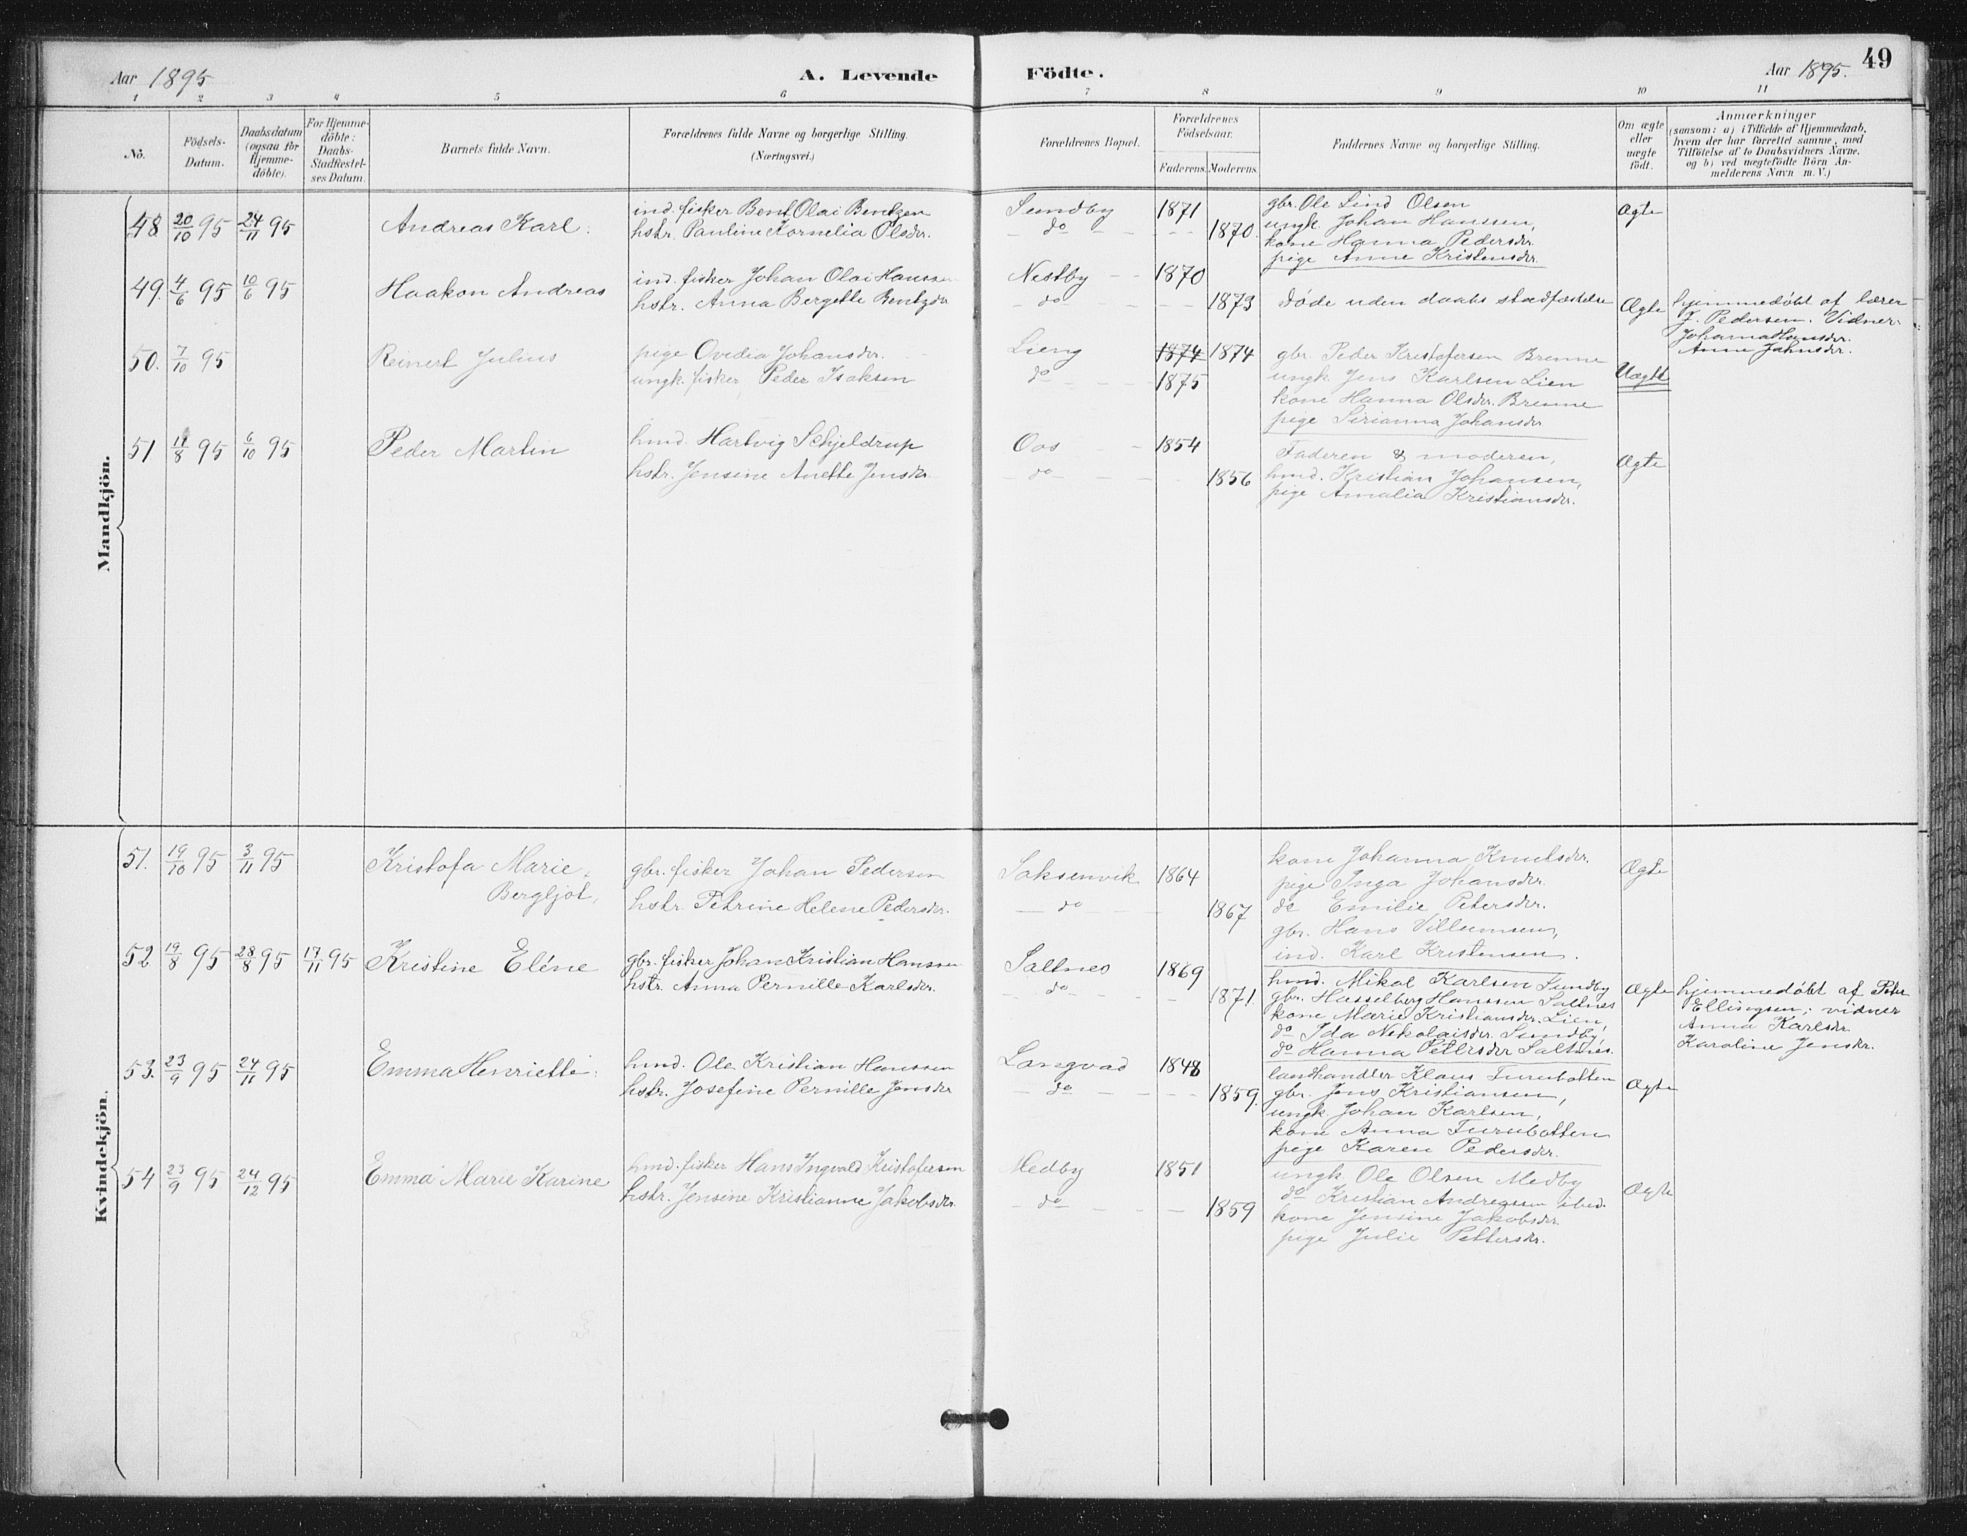 Aar 1895
A. Levende
Födte.
Aar 1895.
49
1 2 3 4 5 6 7 8 9 10 11
No.
Födsels-Datum.
Daabsdatum (ogsaa for Hjemme-döbte).
For Hjemme-döbte: Daabs-Stadfæstel-ses Datum.
Barnets fulde Navn.
Forældrenes fulde Navne og borgerlige Stilling.
(Næringsvei.)
Forældrenes Bopæl.
Forældrenes Födselsaar.
Faderens. Moderens.
Faddernes Navne og borgerlige Stilling.
Om ægte eller uægte födt.
Anmærkninger
(saasom: a) i Tilfælde af Hjemmedaab,
hvem der har forrettet samme, med
Tilföielse af to Daabsvidners Navne,
og b) ved uægtefödte Börn An-
melderens Navn m. V.)
Mandkjön.
48 20/10 95 24/11 95 Andreas Karl.
ind. fisker Bent Olai Bentzen
hstr. Pauline Kornelia Olsdr.
Sundby 1871
do 1870.
gbr. Ole Lind Olsen
ungk. Johan Hanssen,
kone Hanna Pedersdr.
pige Anne Kristensdr.
Ægte
49. 4/6 95 10/6 95 Haakon Andreas
ind. fisker Johan Olai Hanssen
hstr. Anna Bergette Bentzdr
Nestby 1870
do 1873
døde uden daabs stadfæstelse
Ægte
hjemmedøbt af lærer
J. Pedersen. Vidner
Johanna Hansdr.
Anne Jahnsdr.
50. 7/10 95 Reinert Julius
pige Ovidia Johansdr.
ungk. fisker Peder Isaksen
Lieng 1874 1874
do 1875
gbr. Peder Kristofersen Brenne
ungk Jens Karlsen Lien
kone Hanna Olsdr. Brenne
pige Sirianna Johansdr
Uægte
51 11/8 95 6/10 95 Peder Martin
hmd. Hartvig Schjeldrup
hstr. Jensine Anette Jensdr.
Oos 1854
do 1856
Faderen & moderen,
hmd. Kristian Johansen,
pige Amalia Kristiansdr.
Ægte
Kvindekjön.
51. 19/10 95 3/11 95 Kristofa Marie
Bergljot,
gbr. fisker Johan Pedersen
hstr. Petrine Helene Pedersdr.
Saksenvik 1864
do 1867
kone Johanna Knutsdr.
pige Inga Johansdr.
do Emilie Petersdr.
gbr. Hans Villumsen,
ind. Karl Kristensen.
Ægte
52 19/8 95 28/8 95 17/11 95 Kristine Eléne
gbr. fisker Johan Kristian Hanssen
hstr. Anna Pernille Karlsdr.
Saltnes 1869
do 1871.
hmd. Mikal Karlsen Sundby
gbr. Hasselberg Hanssen Saltnes
kone Marie Kristiansdr. Lien,
do Ida Nikolaisdr. Sundby,
do Hanna Petersdr Saltnes.
Ægte
hjemmedøbt af Peter
Ellingsen; vidner
Anna Karlsdr
Karoline Jensdr.
53. 23/9 95 24/11 95 Emma Henriette.
hmd. Ole Kristian Hanssen
hstr. Josefine Pernille Jensdr
Langvad 1848
do 1859.
landhandler Klaus Furubotten
gbr. Jens Kristiansen,
ungk Johan Karlsen,
kone Anna Furubotten
pige Karen Pedersdr.
Ægte
54 23/9 95 24/12 95 Emma Marie Karine
hmd. fisker Hans Ingvald Kristofersen
hstr. Jensine Kristianne Jakobsdr.
Medby 1851
do 1859
ungk Ole Olsen Medby
do Kristian Andreassen ibid.
kone Jensine Jakobsdr
pige Julie Pettersdr.
Ægte